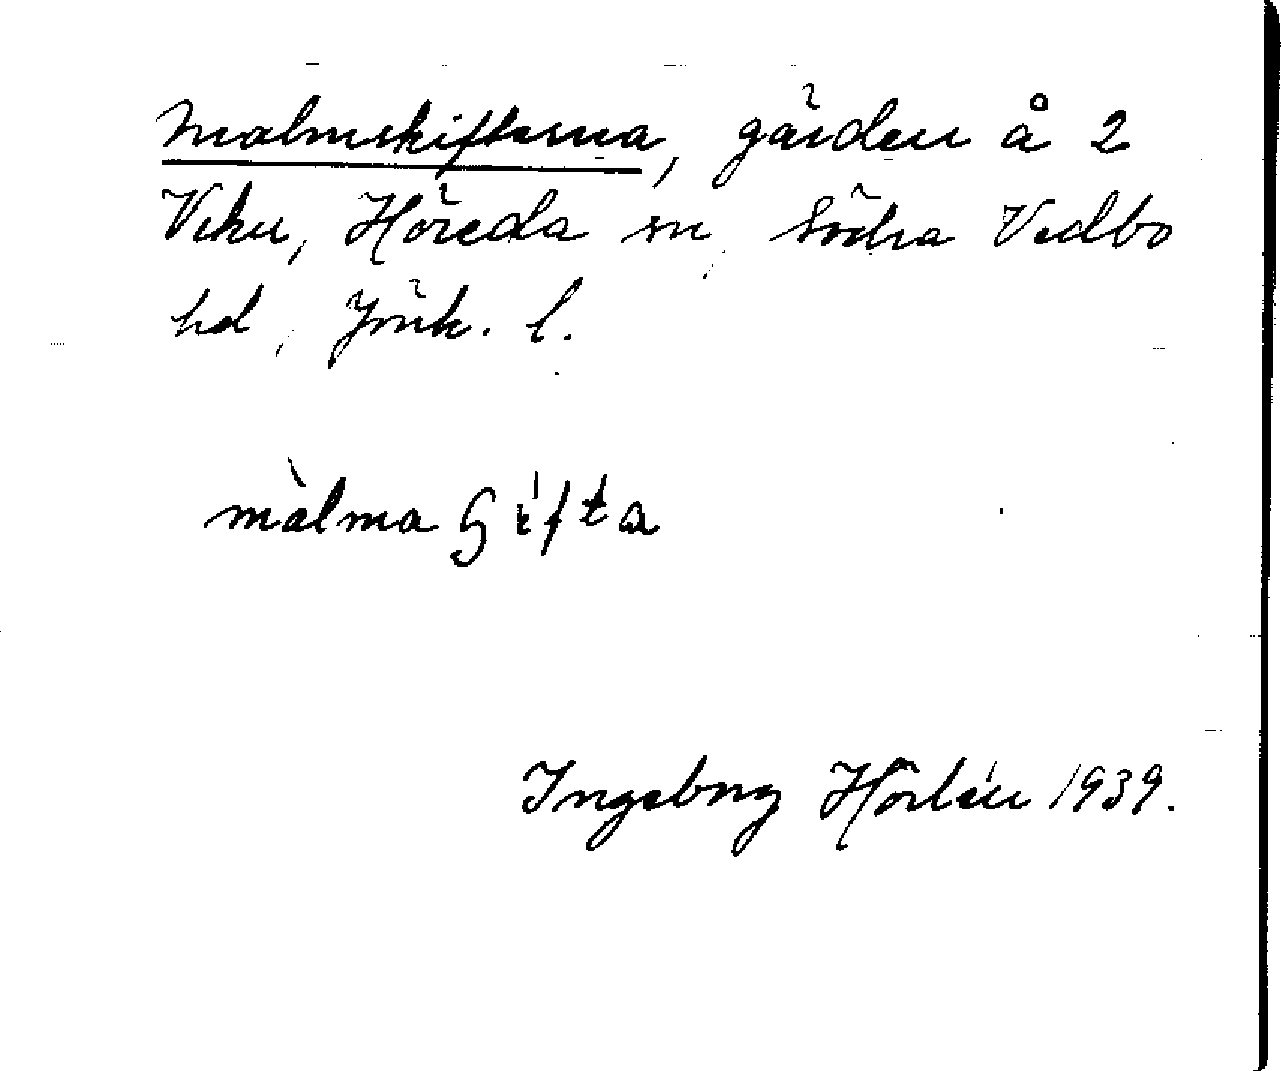 Malmskifterna, gärden å 2
Veku, Höreda sn, Södra Vedbo
hd, Jönk. l.
màlmaʃìfta
Ingeborg Hörlén 1939.